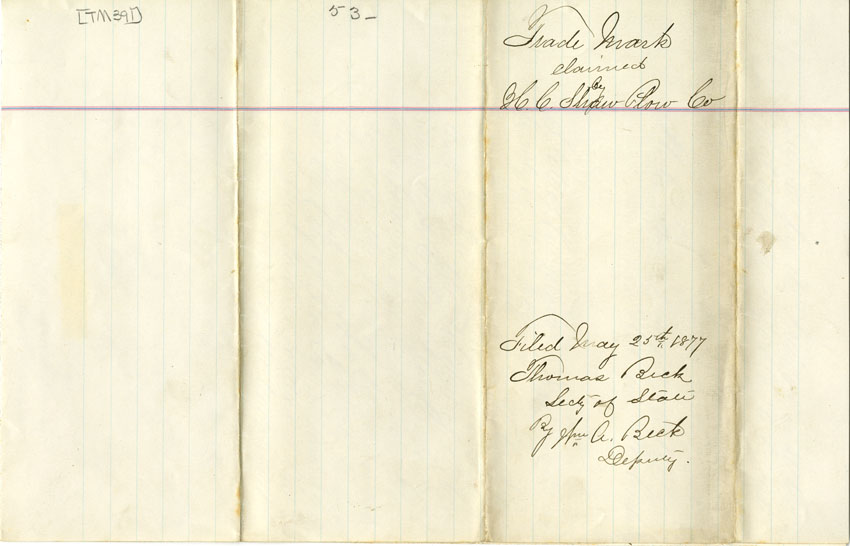 [TM391]
53_
Trade Mark
claimed
by
H. C. Shaw Plow Co
Filed May 25th, 1877
Thomas Beck
Secty of State
By Wm A. Beck
Deputy.